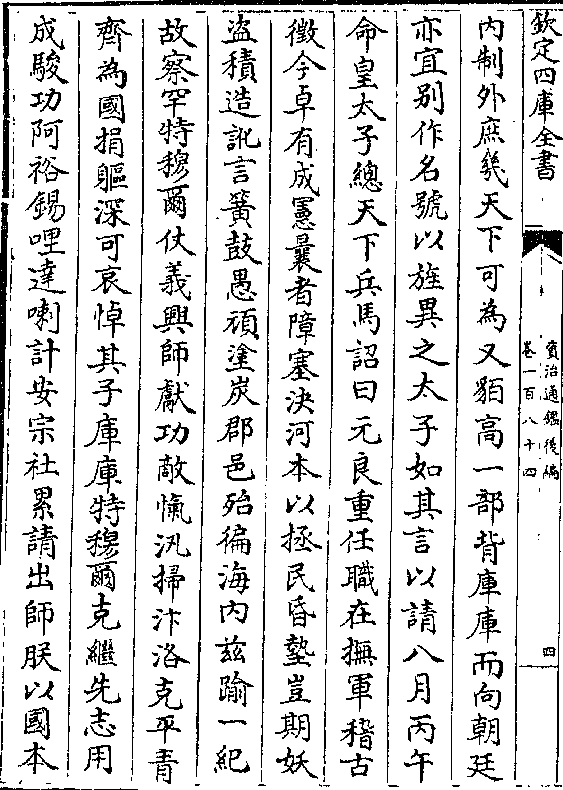 欽定四庫全書
資治通鑑後編
卷一百八十四
四
內制外庶幾天下可為又貊高一部背庫庫而向朝廷
亦宜别作名號以旌異之太子如其言以請八月丙午
命皇太子總天下兵馬詔曰元良重任職在撫軍稽古
徵今卓有成憲曩者障塞決河本以拯民昏墊豈期妖
盜積造訛言簧鼓愚頑塗炭郡邑殆徧海內茲踰一紀
故察罕特穆爾仗義興師獻功敵愾汎掃汴洛克平青
齊為國捐軀深可哀悼其子庫庫特穆爾克繼先志用
成駿功阿裕錫哩達喇計安宗社累請出師朕以國本